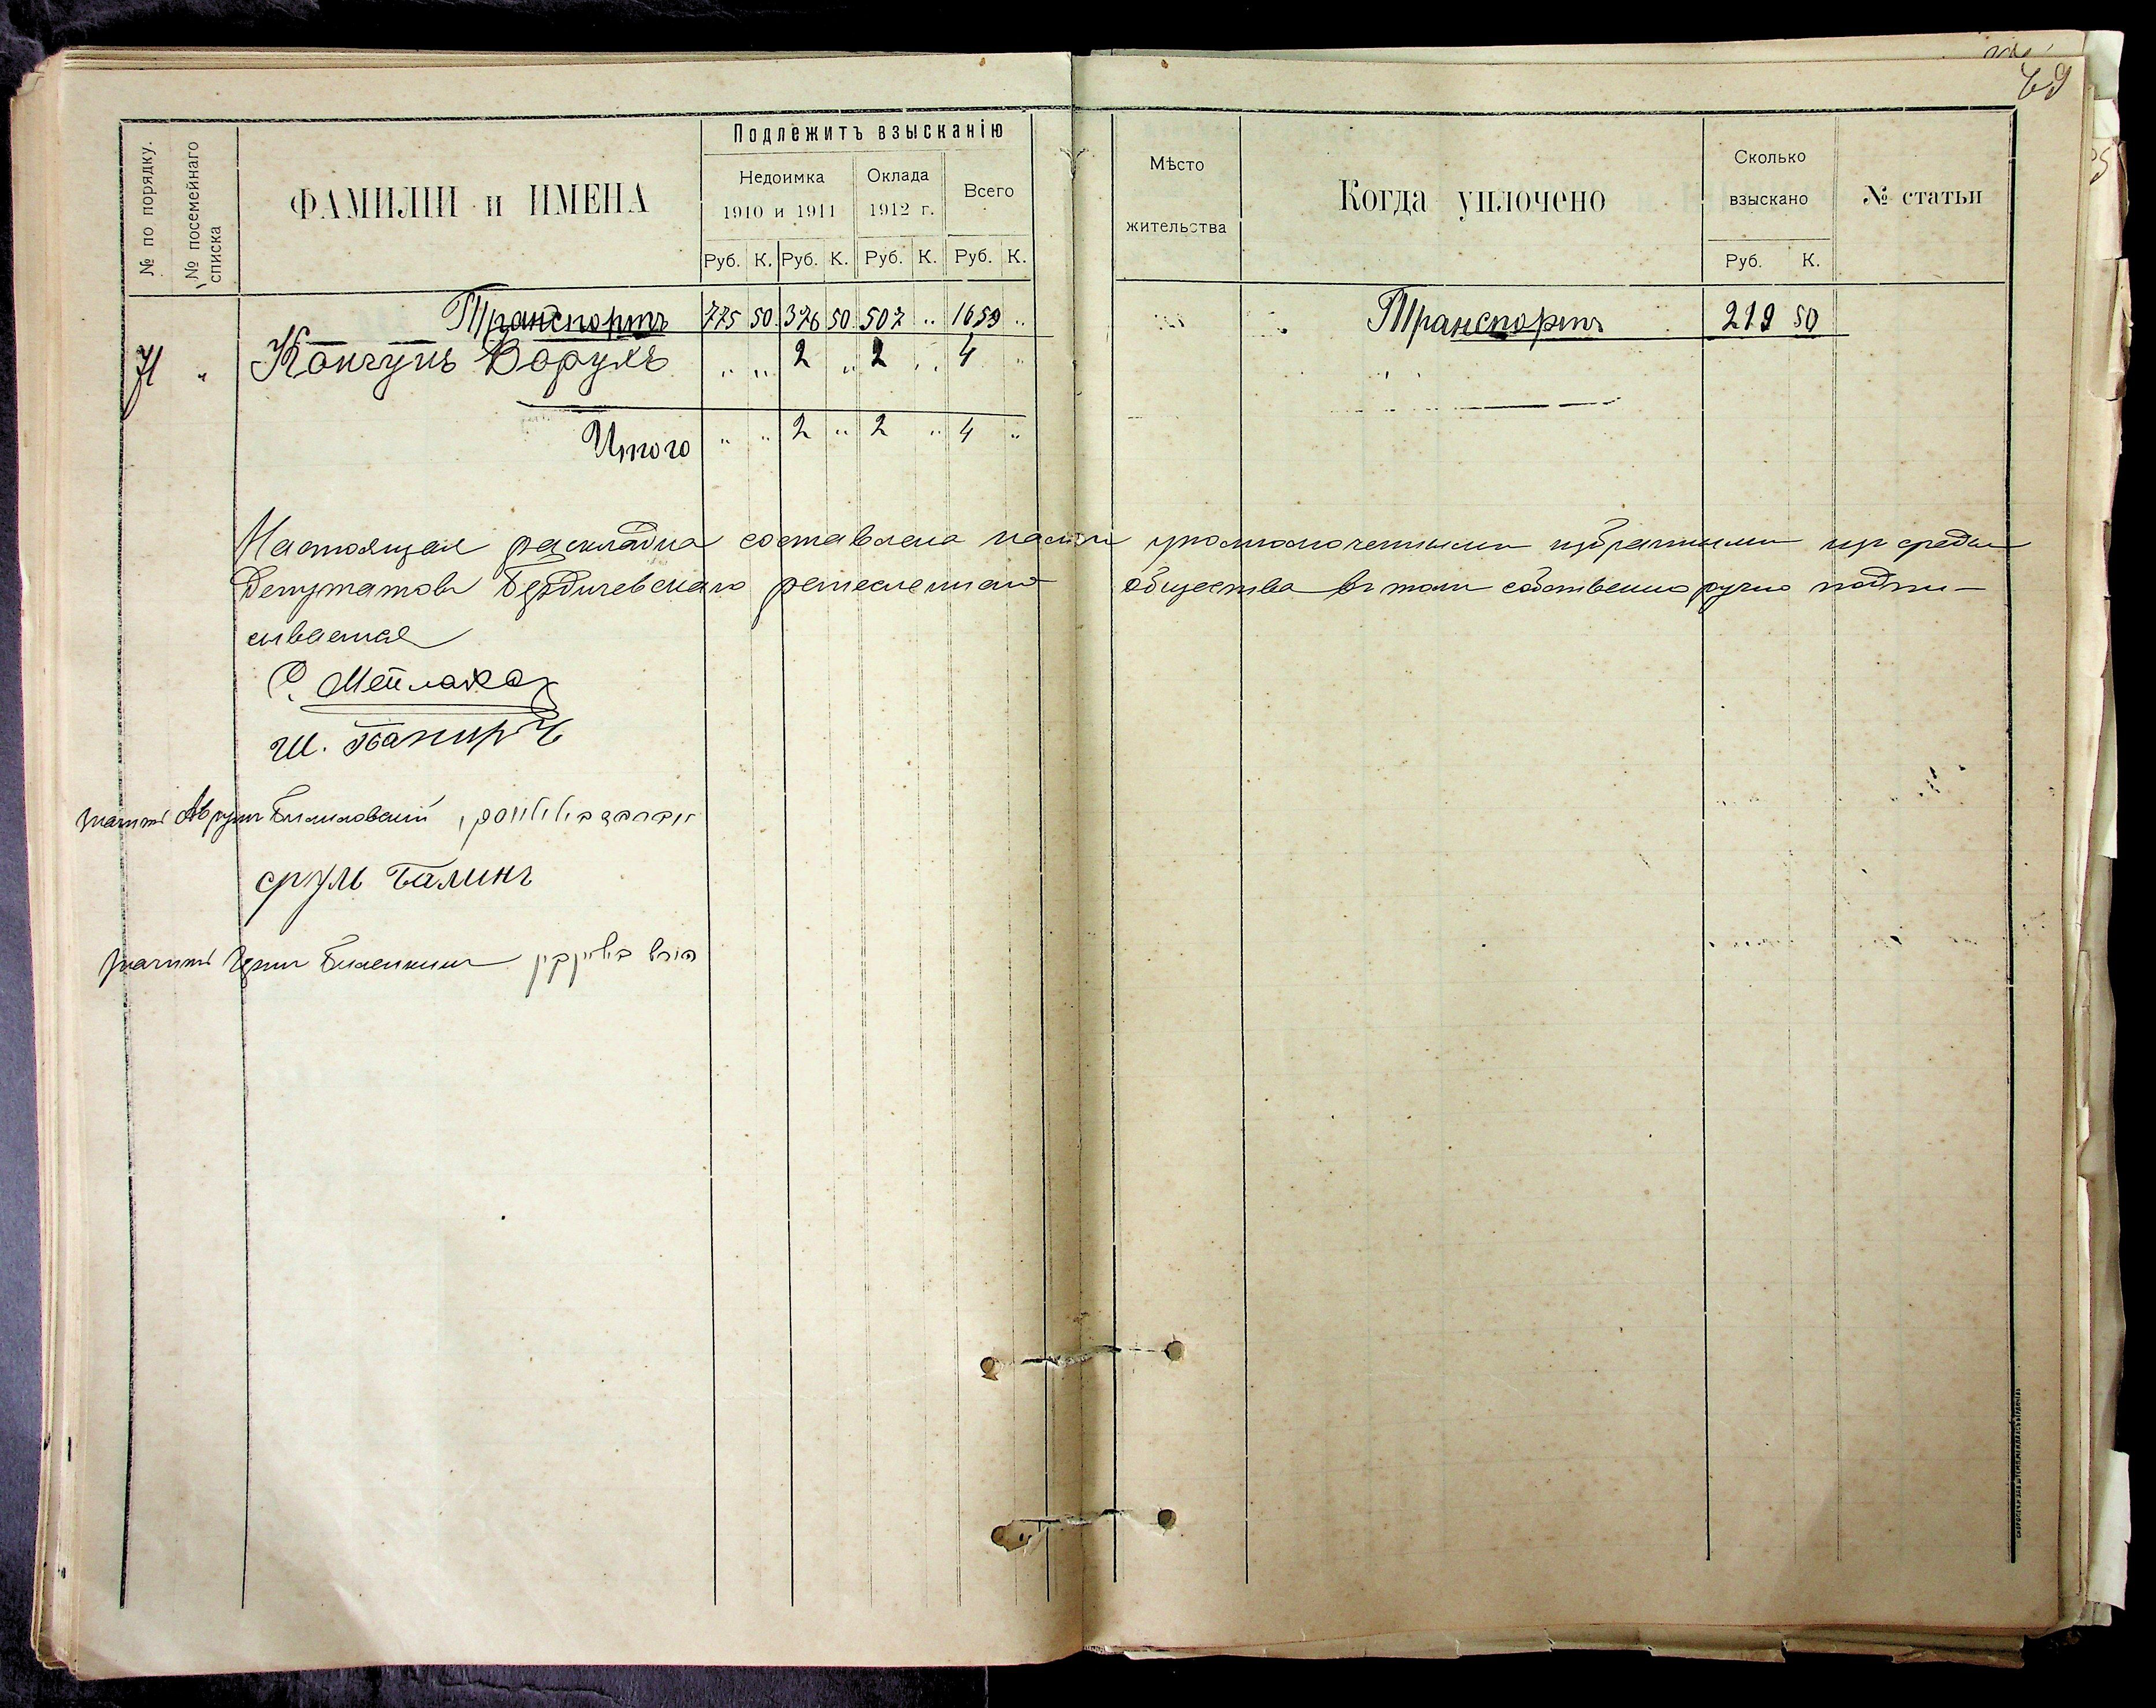 69
№ по порядку.
№ посемейнаго списка
ФАМИЛІИ и ИМЕНА
Подлежитъ взысканію
Недоимка
1910 и 1911
Оклада
1912 г.
Всего
Руб. К. Руб. К. Руб. К. Руб. К.
Мѣсто
жительства
Когда уплочено
Сколько
взыскано
Руб. К.
№ статьи
Транспортъ 775 50 376 50 507 " 1659 "
Транспортъ 219 50
71 " Борухъ " " 2 " 2 " 4 "
Итого " " 2 " 2 " 4 "
Настоящая раскладка составлена нами уполномоченными избранными изъ среды
депутатовъ Бердичевскаго ремесленнаго общества въ томъ собственноручно подпи-
сываемся
Ш.
Аврумъ
Сруль Балинъ